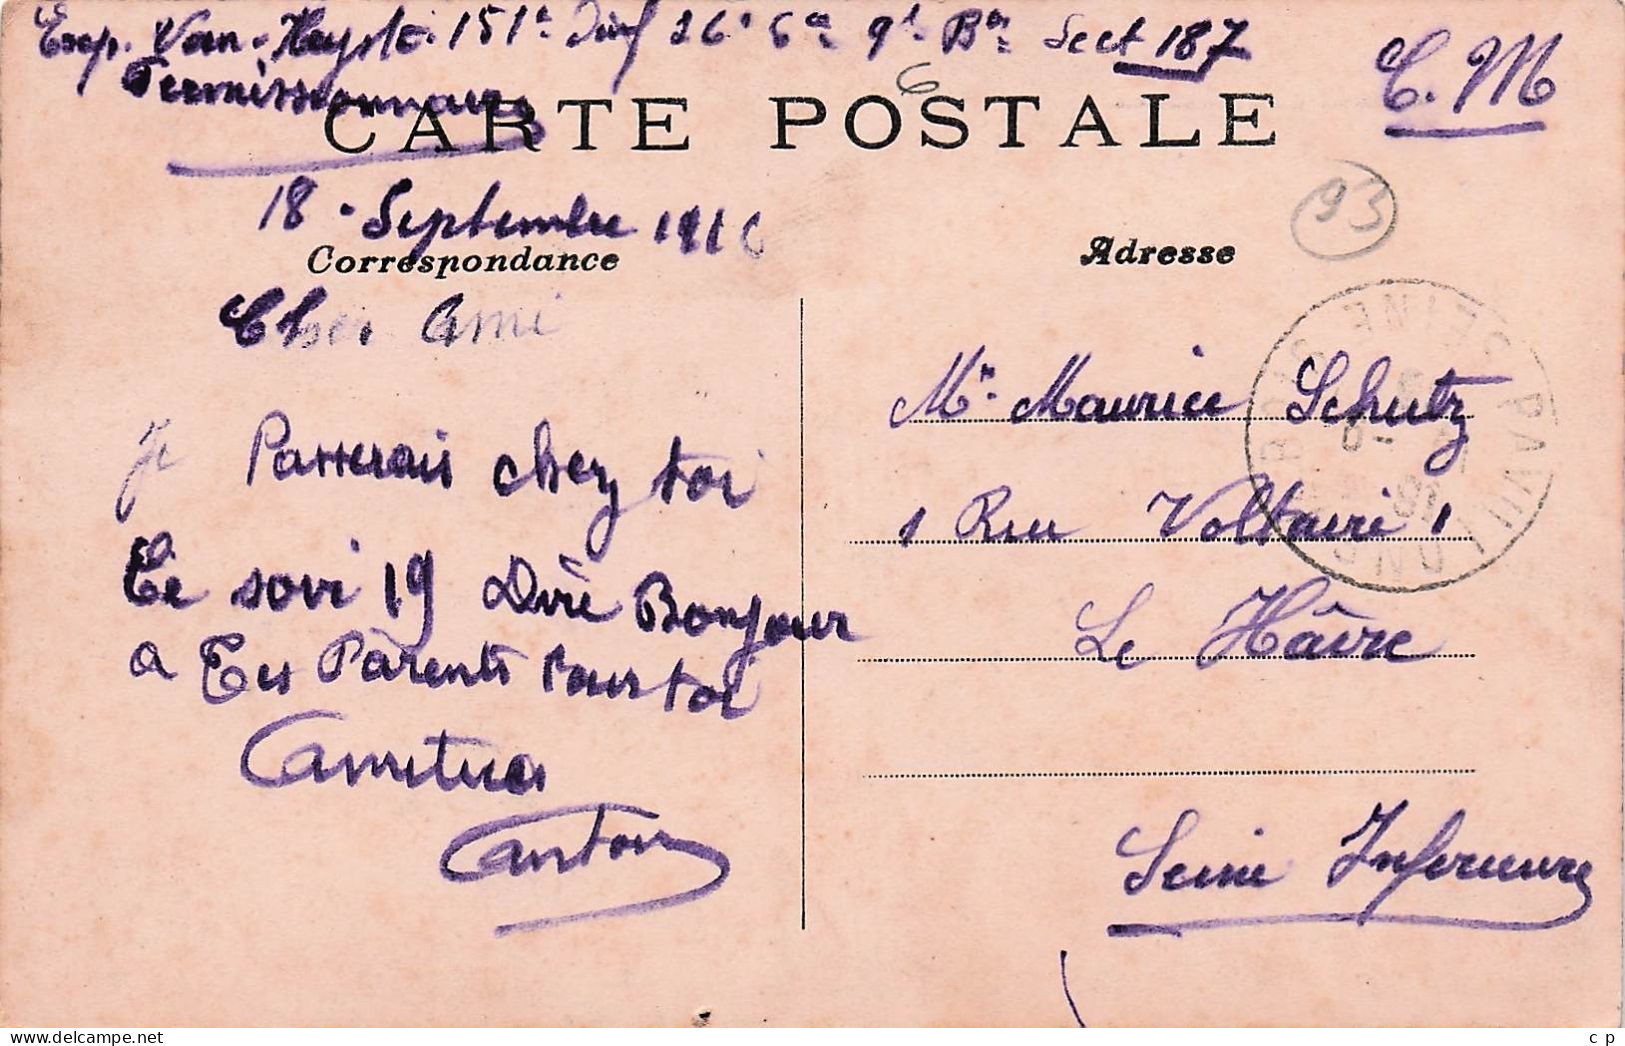 Exp. Van-Heyste. 151e Inf 26e Cie 9e Bon Sect 187
Permissionnaire
C.M
6
CARTE POSTALE
93
18 - Septembre 1916
Correspondance
Adresse
Cher Ami
Je Passerais chez toi
Ce soir 19 Dire Bonjour
a Tes Parents Pour toi
Antoin
Mr Maurice Schutz
1 Rue Voltaire 1
Le Hâvre
Seine Inferieure
PAVILLONS
SEINE
c p